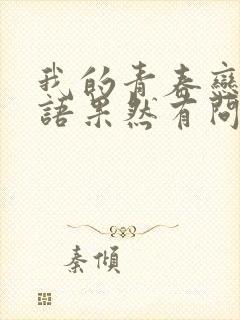 我的青春戀
語果然有問
秦傾